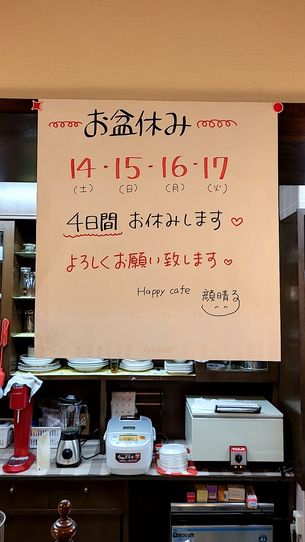 お盆休み
14・15・16・17
(土) (日) (月) (火)
4日間 お休みします♡
よろしくお願い致します♡
Happy cafe 顔晴る